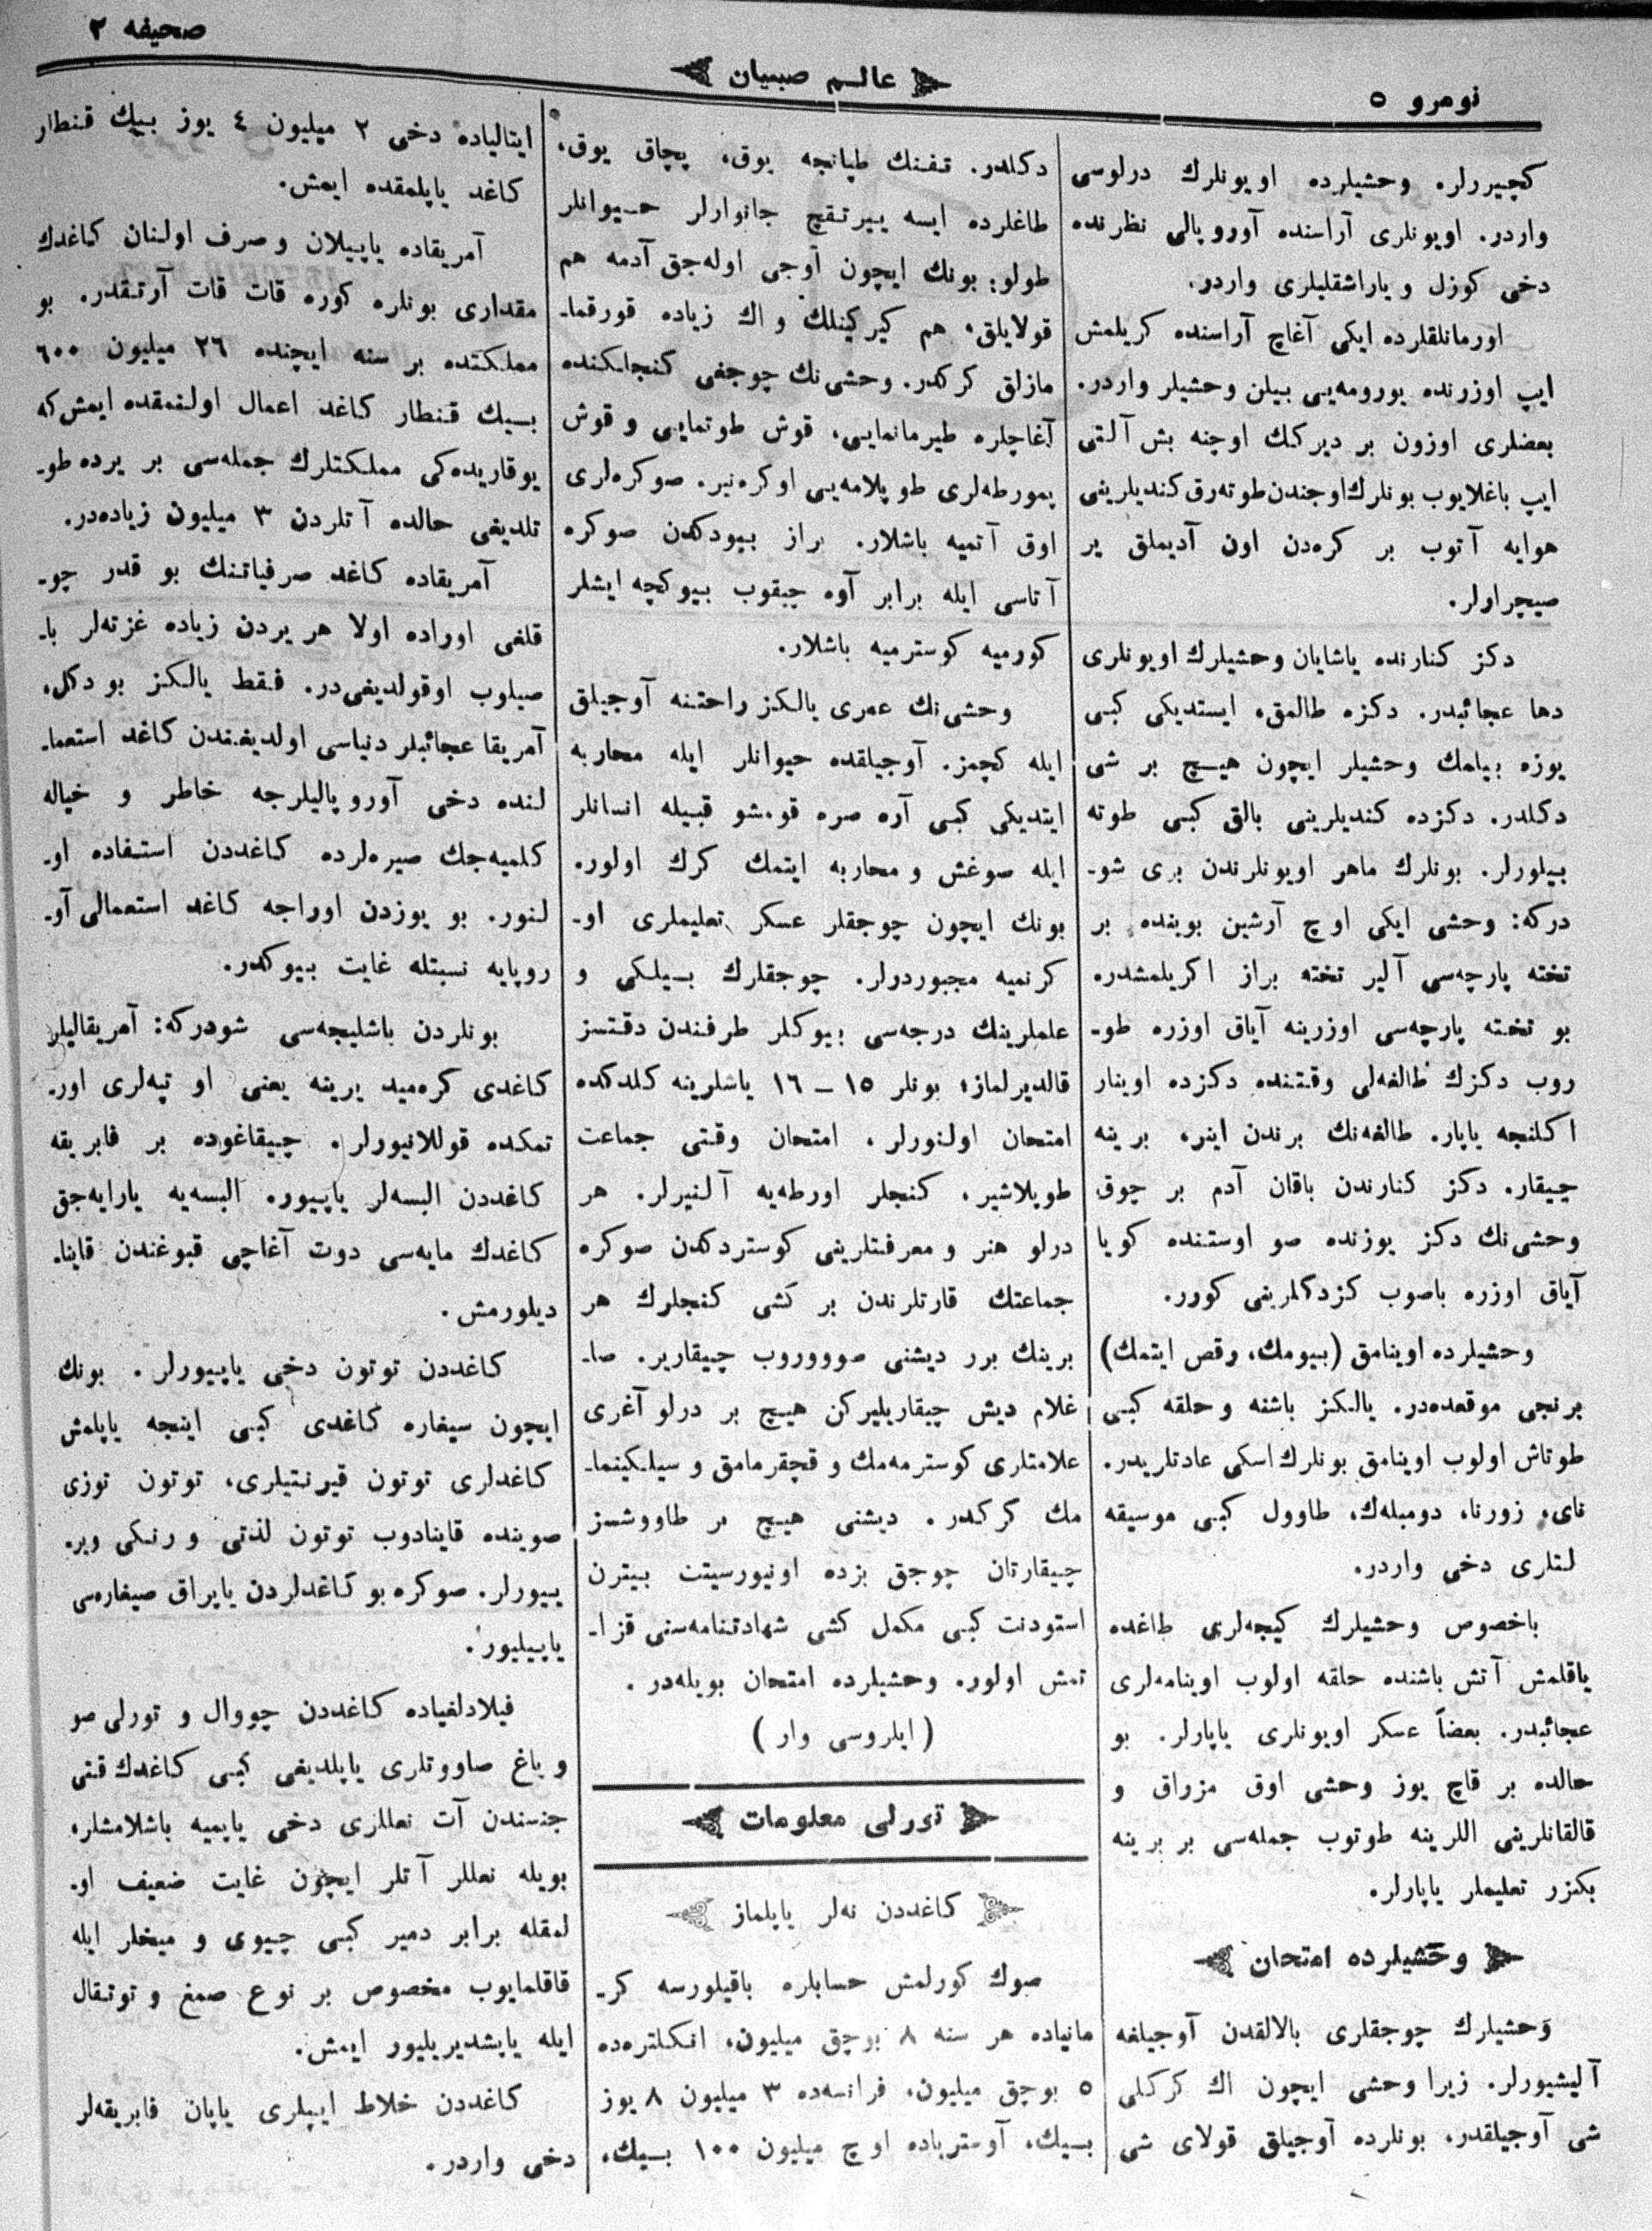 صحیفه ٢
عالم صبیان
نومرو ٥
کچیررلر. وحشیلرده اویونلرك درلوسی
واردر. اویونلری آراسنده آوروپالی نظرنده
دخی کوزل و یاراشقلیلری واردر.
اورمانلقلرده ایکی آغاچ آراسنده کریلمش
ایپ اوزرنده یورومه‌یی بیلن وحشیلر واردر.
بعضلری اوزون بر دیرکك اوچنه بش آلتی
ایپ باغلایوب بونلرك اوجندن طوته‌رق کندیلرینی
هوایه آتوب بر کره‌دن اون آدیملق یر
صیچراولر.
دکز کنارنده یاشایان وحشیلرك اویونلری
دها عجائبدر. دکزه طالمق، ایستدیکی کبی
یوزه بیلمك وحشیلر ایچون هیچ بر شی
دکلدر. دکزده کندیلرینی بالق کبی طوته
بیلورلر. بونلرك ماهر اویونلرندن بری شو-
درکه: وحشی ایکی اوچ آرشین بوینده بر
تخته پارچه‌سی آلیر تخته براز اکریلمشدر.
بو تخته پارچه‌سی اوزرینه آیاق اوزره طو-
روب دکزك طالغه‌لی وقتنده دکزده اوینار
اکلنجه یاپار. طالغه‌نك برندن اینر، برینه
چیقار. دکز کنارندن باقان آدم بر چوق
وحشی‌نك دکز یوزنده صو اوستنده کویا
آیاق اوزره باصوب کزدکلرینی کورر.
وحشیلرده اوینامق (بیومك، رقص ایتمك)
برنجی موقعده‌در. یالکز باشنه و حلقه کبی
طوتاش اولوب اوینامق بونلرك اسکی عادتلریدر.
نای، زورنا، دومبله‌ك، طاوول کبی موسیقه
لتلری دخی واردر.
باخصوص وحشیلرك کیجه‌لری طاغده
یاقلمش آتش باشنده حلقه اولوب اوینامه‌لری
عجائبدر. بعضاً عسکر اویونلری یاپارلر. بو
حالده بر قاچ یوز وحشی اوق مزراق و
قالقانلرینی اللرینه طوتوب جمله‌سی بر برینه
بکزر تعلیملر یاپارلر.
وحشیلرده امتحان
وحشیلرك چوجقلری بالالقدن آوجیلغه
آلیشیورلر. زیرا وحشی ایچون اك کرکلی
شی آوجیلقدر، بونلرده آوجیلق قولای شی
دکلدر. تفنك طپانچه یوق، پچاق یوق،
طاغلرده ایسه ییرتقچ جانوارلر حیوانلر
طولو: بونك ایچون آوجی اوله‌جق آدمه هم
قولایلق، هم کیرکینلك و اك زیاده قورقما-
مازلق کرکدر. وحشی‌نك چوجغی کنجلکنده
آغاچلره طیرمانمایی، قوش طوتمایی و قوش
یمورطه‌لری طوپلامه‌یی اوکره‌نیر. صوکره‌لری
اوق آتمیه باشلار. براز بیودکدن صوکره
آتاسی ایله برابر آوه چیقوب بیوکچه ایشلر
کورمیه کوسترمیه باشلار.
وحشی‌نك عمری یالکز راحتنه آوجیلق
ایله کچمز. آوجیلقده حیوانلر ایله محاربه
ایتدیکی کبی آره صره قومشو قبیله انسانلر
ایله صوغش و محاربه ایتمك کرك اولور.
بونك ایچون چوجقلر عسکر تعلیملری او-
کرنمیه مجبوردولر. چوجقلرك بیلکی و
علملرینك درجه‌سی بیوکلر طرفندن دقتسز
قالدیرلماز؛ بونلر ١٥ – ١٦ یاشلرینه کلدکده
امتحان اولنورلر. امتحان وقتی جماعت
طوپلاشیر، کنجلر اورطه‌یه آلنیرلر. هر
درلو هنر و معرفتلرینی کوستردکدن صوکره
جماعتك قارتلرندن بر کشی کنجلرك هر
برینك برر دیشنی صووروب چیقاریر. صا-
غلام دیش چیقاریلیرکن هیچ بر درلو آغری
علامتلری کوسترمه‌مك و قچقرمامق و سیلکینما-
مك کرکدر. دیشنی هیچ بر طاووشسز
چیقارتان چوجق بزده اونیورسیتت بیترن
استودنت کبی مکمل کشی شهادتنامه‌سنی قزا-
تمش اولور. وحشیلرده امتحان بویله‌در.
(ایلروسی وار)
تورلی معلومات
کاغددن نه‌لر یاپلماز
صوك کورلمش حسابلره باقیلورسه کر-
مانیاده هر سنه ٨ بوچق میلیون، انکلتره‌ده
٥ بوچق میلیون، فرانسه‌ده ٣ میلیون ٨ یوز
بیك، آوسترپاده اوچ میلیون ١٠٠ بیك،
ایتالیاده دخی ٢ میلیون ٤ یوز بیك قنطار
کاغد یاپلمقده ایمش.
آمریقاده یاپیلان و صرف اولنان کاغدك
مقداری بونلره کوره قات قات آرتقدر. بو
مملکتده بر سنه ایچنده ٢٦ میلیون ٦٠٠
بیك قنطار کاغد اعمال اولنمقده ایمش که
یوقاریده‌کی مملکتلرك جمله‌سی بر یرده طو-
تلدیغی حالده آنلردن ٣ میلیون زیاده‌در.
آمریقاده کاغد صرفیاتنك بو قدر چو-
قلغی اوراده اولا هر یردن زیاده غزته‌لر با-
صیلوب اوقولدیغی‌در. فقط یالکز بو دکل،
آمریقا عجائبلر دنیاسی اولدیغندن کاغد استعما-
لنده دخی آوروپالیلرجه خاطر و خیاله
کلمیه‌جك صیره‌لرده کاغددن استفاده او-
لنور. بو یوزدن اوراجه کاغد استعمالی آو-
روپایه نسبتله غایت بیوکدر.
بونلردن باشلیجه‌سی شودرکه: آمریقالیلر
کاغدی کره‌مید یرینه یعنی او تپه‌لری اور-
تمکده قوللانیورلر. چیقاغوده بر فابریقه
کاغددن البسه‌لر یاپییور. البسه‌یه یارایه‌جق
کاغدك مایه‌سی دوت آغاچی قبوغندن قاینا-
دیلورمش.
کاغددن توتون دخی یاپییورلر. بونك
ایچون سیغاره کاغدی کبی اینجه یاپلمش
کاغدلری توتون قیرنتیلری، توتون توزی
صوینده قاینادوب توتون لذتی و رنکی ویر-
ییورلر. صوکره بو کاغدلردن یاپراق صیغاره‌سی
یاپیلیور.
فیلادلفیاده کاغددن چووال و تورلی صو
و یاغ صاووتلری یاپلدیغی کبی کاغدك قتی
جنسندن آت نعللری دخی یاپمیه باشلامشلر.
بویله نعللر آتلر ایچون غایت ضعیف او-
لمقله برابر دمیر کبی چیوی و میخلر ایله
قاقلمایوب مخصوص بر نوع صمغ و توتقال
ایله یاپشدیریلیور ایمش.
کاغددن خلاط ایپلری یاپان فابریقه‌لر
دخی واردر.